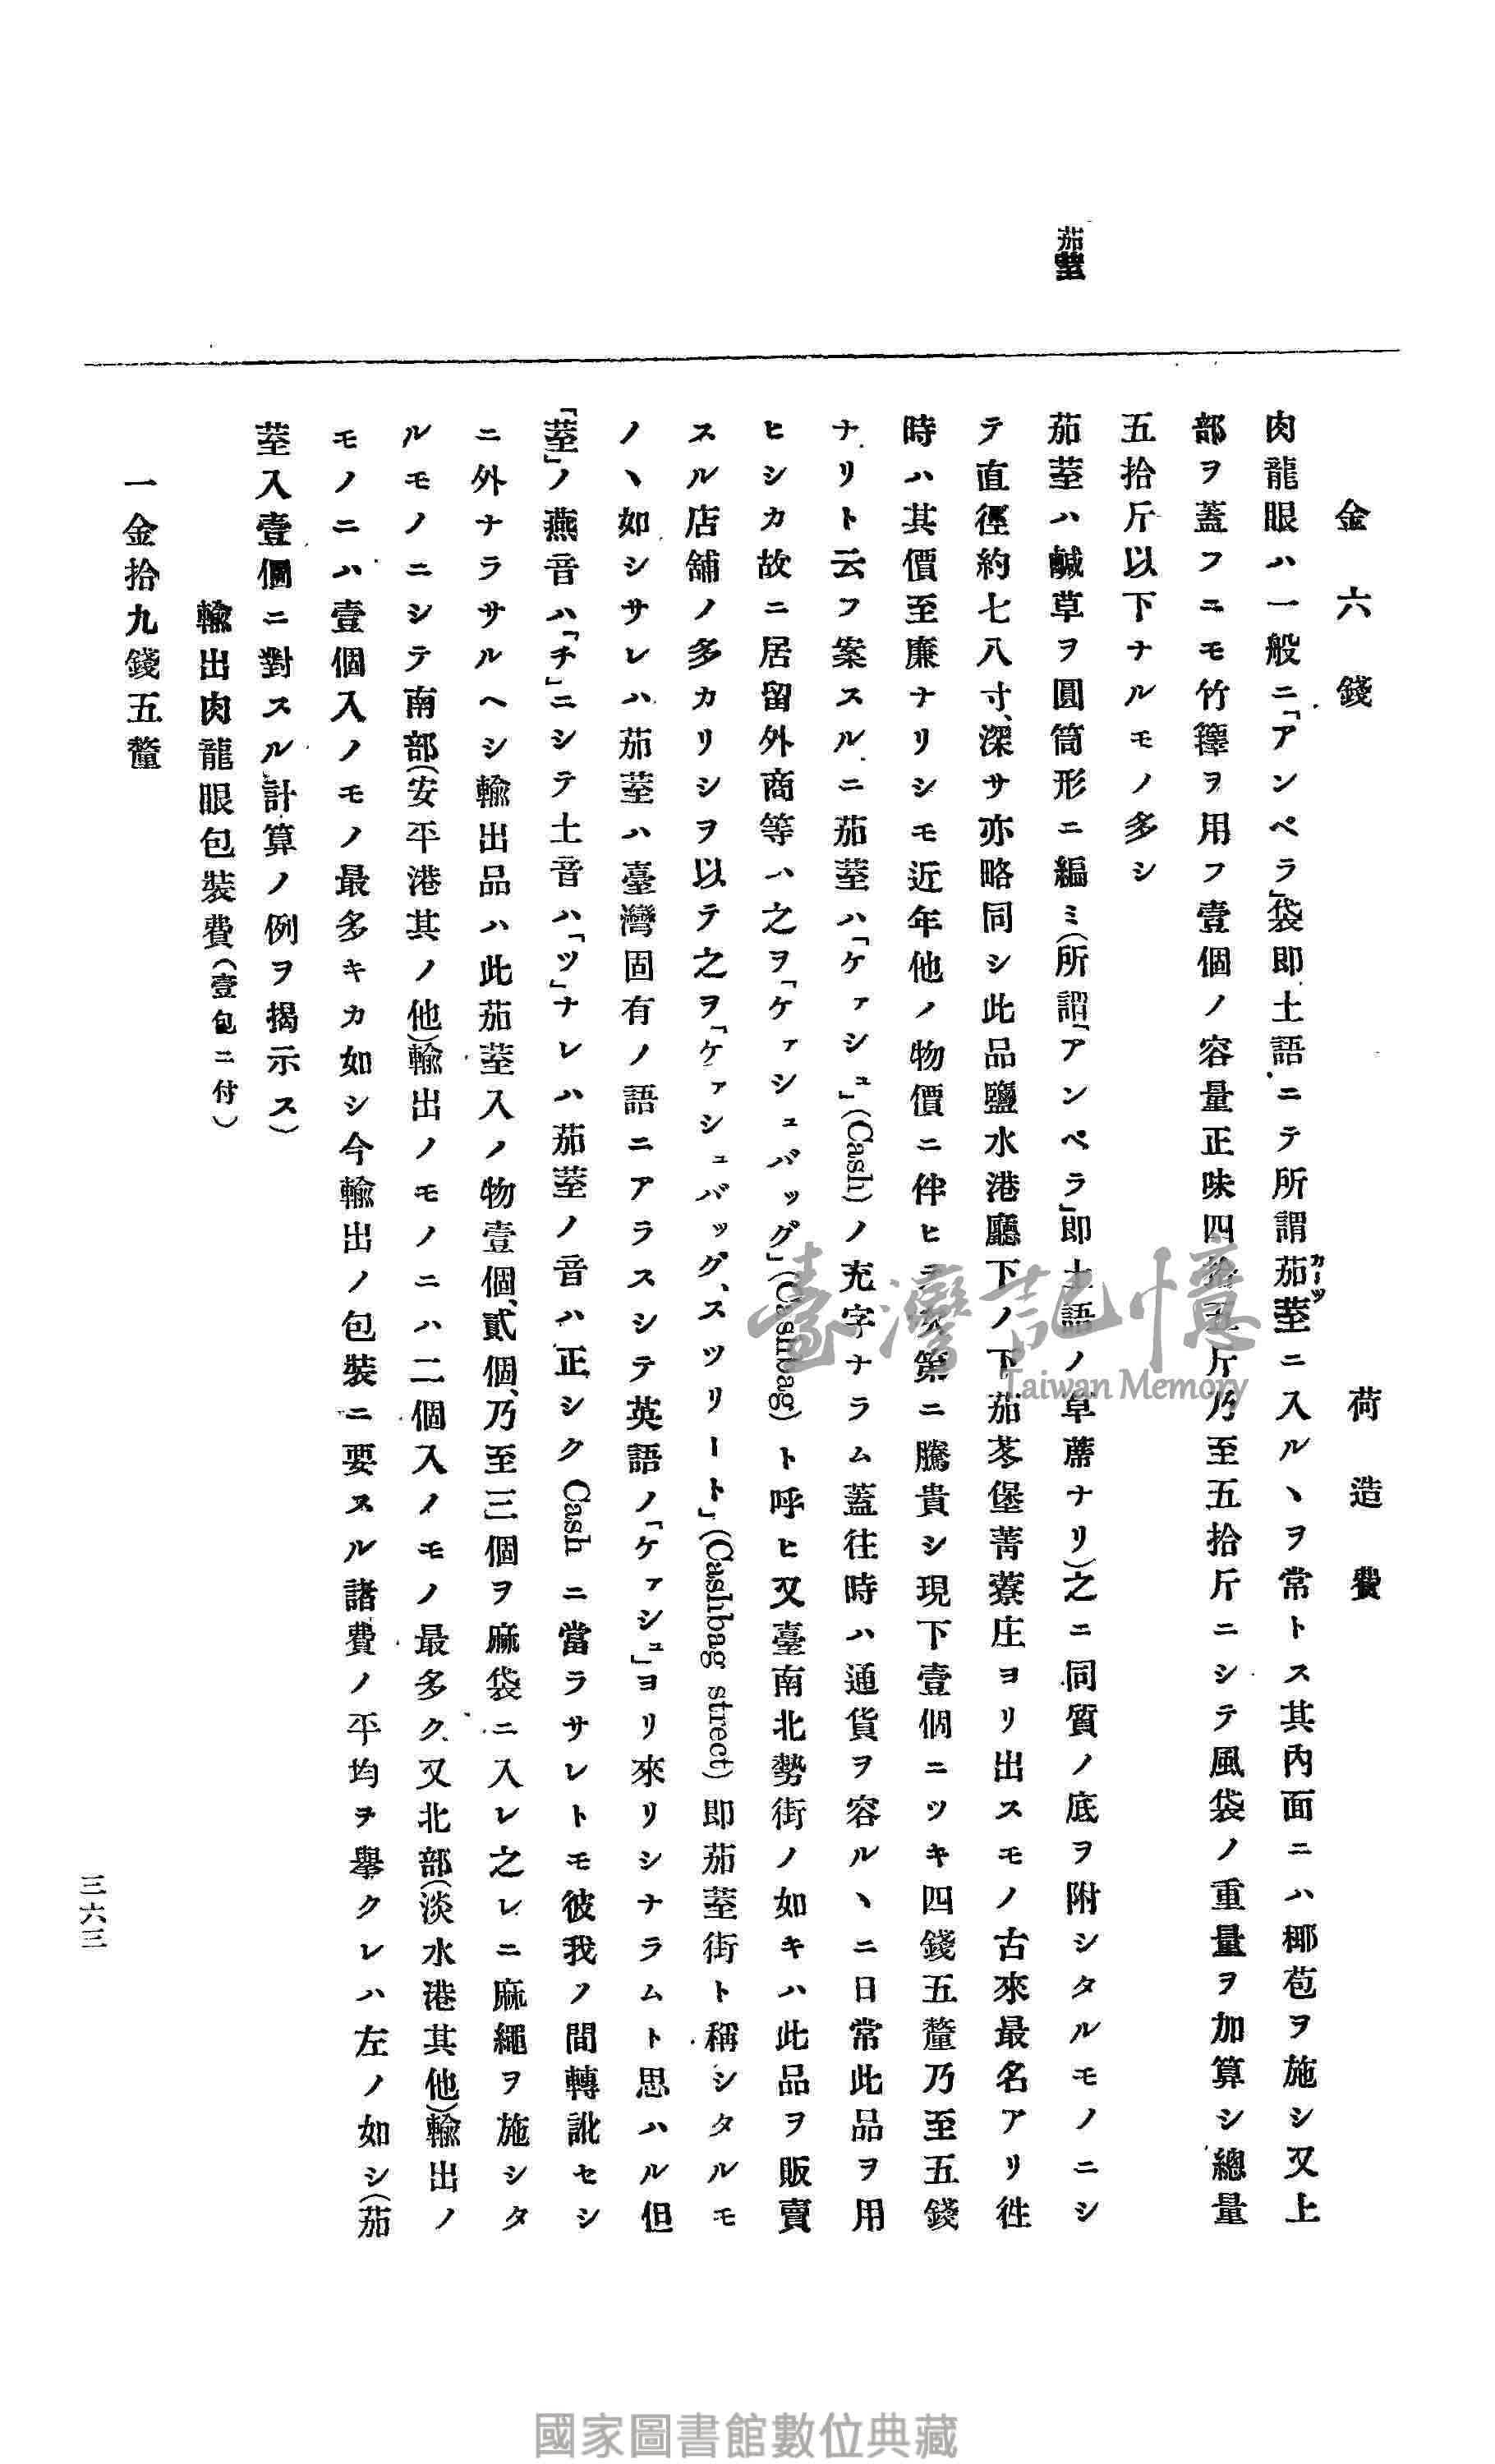 茄𦯬
金六錢　荷造費
肉龍眼ハ一般ニ「アンペラ」袋即土語ニテ所謂茄𦯬カーツニ入ルヽヲ常トス其內面ニハ椰苞ヲ施シ又上
部ヲ蓋フニモ竹籜ヲ用フ壹個ノ容量正味四拾五斤乃至五拾斤ニシテ風袋ノ重量ヲ加算シ總量
五拾斤以下ナルモノ多シ
茄𦯬ハ鹹草ヲ圓筒形ニ編ミ（所謂「アンペラ」即土語ノ草蓆ナリ）之ニ同質ノ底ヲ附シタルモノニシ
テ直徑約七八寸、深サ亦略同シ此品鹽水港廳下ノ下茄苳堡菁藔庄ヨリ出スモノ古來最名アリ徃
時ハ其價至廉ナリシモ近年他ノ物價ニ伴ヒテ次第ニ騰貴シ現下壹個ニツキ四錢五釐乃至五錢
ナリト云フ案スルニ茄𦯬ハ「ケァシュ」（Cash）ノ充字ナラム蓋往時ハ通貨ヲ容ルヽニ日常此品ヲ用
ヒシカ故ニ居留外商等ハ之ヲ「ケァシュバッグ」（Cashbag）ト呼ヒ又臺南北勢街ノ如キハ此品ヲ販賣
スル店舖ノ多カリシヲ以テ之ヲ「ケァシュバッグ、スツリート」（Cashbag strect）即茄𦯬街ト稱シタルモ
ノヽ如シサレハ茄𦯬ハ臺灣固有ノ語ニアラスシテ英語ノ「ケァシュ」ヨリ來リシナラムト思ハル但
「𦯬」ノ燕音ハ「チ」ニシテ土音ハ「ツ」ナレハ茄𦯬ノ音ハ正シクCashニ當ラサレトモ彼我ノ間轉訛セシ
ニ外ナラサルヘシ輸出品ハ此茄𦯬入ノ物壹個、貳個、乃至三個ヲ麻袋ニ入レ之レニ麻繩ヲ施シタ
ルモノニシテ南部（安平港其ノ他）輸出ノモノニハ二個入ノモノ最多ク、又北部（淡水港其他）輸出ノ
モノニハ壹個入ノモノ最多キカ如シ今輸出ノ包裝ニ要スル諸費ノ平均ヲ擧クレハ左ノ如シ（茄
𦯬入壹個ニ對スル計算ノ例ヲ揭示ス）
輸出肉龍眼包裝費（壹包ニ付）
一金拾九錢五釐
三六三
臺灣記憶
Taiwan Memory
國家圖書館數位典藏